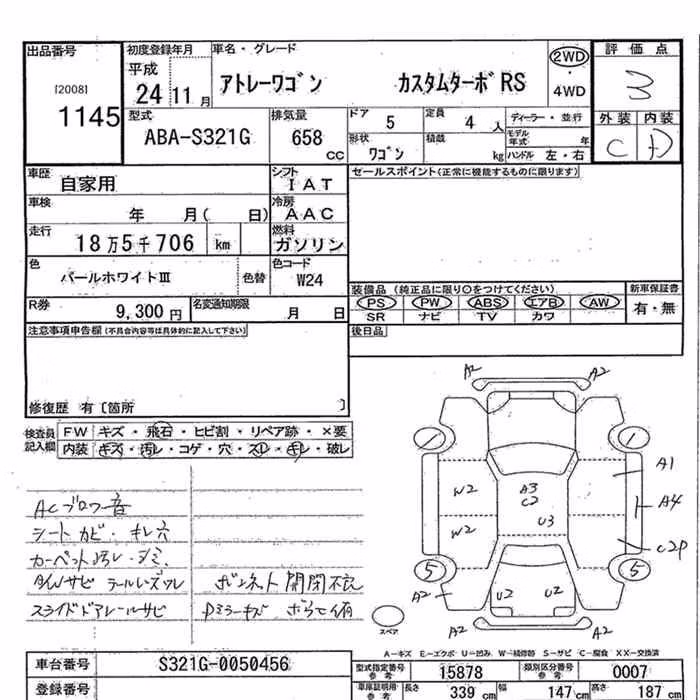 出品番号 初度登録年月 車名・グレード 評価点
[2008] 平成 アトレーワゴン カスタムターボRS 2WD ・ 4WD 3
1145 24 11月
型式 排気量 ドア 定員 ディーラー・並行 外装 内装
ABA-S321G 658 CC 5 4人 モデル年式 年 C D
形状 積載
ワゴン kg ハンドル 左・右
車歴 自家用 シフト IAT セールスポイント(正常に機能するものに限ります)
車検 年 月( 日) 冷房 AAC
走行 18万5千706 km 燃料 ガソリン
色 パールホワイトⅢ 色替 色コード W24
装備品 (純正品に限り〇をつけてください) 新車保証書
PS PW ABS エアB AW 有・無
SR ナビ TV カワ
R券 9,300円 名変通知期限 月 日
後日品
注意事項申告欄(不具合内容等は具体的に記入して下さい)
修復歴 有〔箇所 〕
検査員記入欄 FW キズ・飛石・ヒビ割・リペア跡・×要
内装 キズ・汚レ・コゲ・穴・スレ・キレ・破レ
A2 A2
A1
W2 A3 C2 A4
W2 U3 C2P
5 5
A2 U2 U2 A2
A2 A2
ACブロワー音
シートカビ・キレ穴
カーペット汚レ・シミ
ボンネット開閉不良
スライドドアレールサビ
スペア
A-キズ E-エクボ U-凹み W-補修跡 S-サビ C-腐食 XX-交換済
車台番号 S321G-0050456 型式指定番号 15878 類別区分番号 0007
登録番号 車庫証明用参考 長さ 339 cm 幅 147 cm 高さ 187 cm